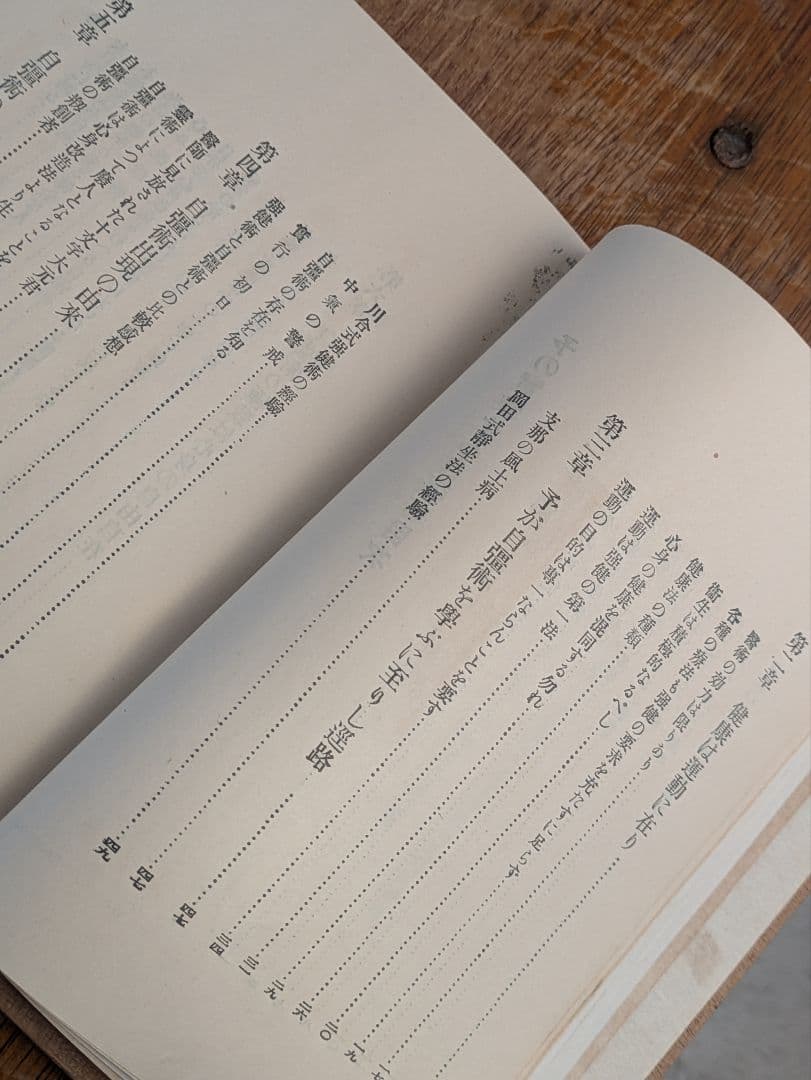 第二章 健康は運動に在り
醫術の効力は限りあり
各種の療法も强健の要求を充たすに足らず
衞生は積極的なるべし
健康法の種類
心身の强健を混同する勿れ
運動は强健の第一法
運動の目的は專一ならんことを要す
第三章 予が自彊術を學ぶに至りし徑路
支那の風土病
岡田式靜坐法の經驗
一七
一九
二〇
二六
二九
三一
三四
四七
四七
四九
川谷式强健術の經驗
中氣の警戒
自彊術の存在を知る
實行の初日
强健術と自彊術との比較感想
第四章 自彊術出現の由來
醫師に見放された十文字大元君
靈術によって廢人となることを
自彊術は心身改造法より生
自彊術の剏創者
第五章 自彊術の